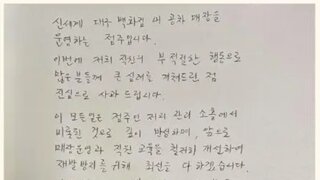 신세계 대구 백화점 내 공차 매장을
운영하는 점주입니다.
이번에 저희 직원의 부적절한 행동으로
많은 분들께 큰 심려를 끼쳐드린 점
진심으로 사과 드립니다.
이 모든일은 점주인 저의 관리 소홀에서
비롯된 것으로 깊이 반성하며, 앞으로
매장운영과 직원 교육을 철저히 개선하여
재발방지를 위해 최선을 다 하겠습니다.